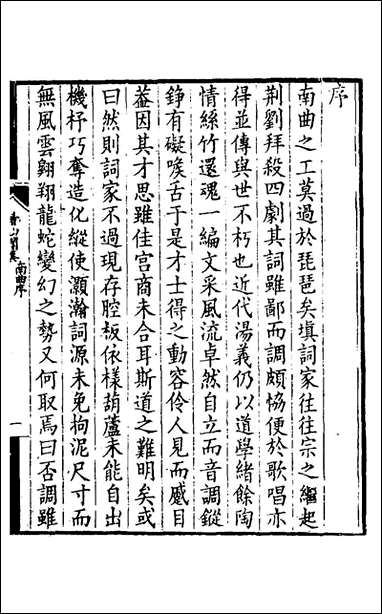 序
南曲之工莫過於琵琶矣塡詞家往往宗之繼起
荆劉拜殺四劇其詞雖鄙而調頗恊便於歌唱亦
得並傳與世不朽也近代湯義仍以道學緒餘陶
情絲竹還魂一編文采風流卓然自立而音調鏦
錚有礙喉舌于是才士得之動容伶人見而蹙目
葢因其才思雖佳宫商未合耳斯道之難明矣或
曰然則詞家不過現存腔板依様葫蘆未能自出
機杼巧奪造化縱使灝瀚詞源未免拘泥尺寸而
無風雲翺翔龍蛇變幻之勢又何取焉曰否調雖
南曲序
一